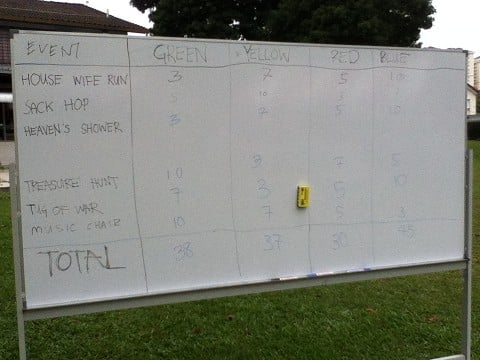 EVENT GREEN YELLOW RED BLUE
HOUSE WIFE RUN 3 7 5 10
SACK HOP 5 10
HEAVEN'S SHOWER 3 7 5 10
TREASURE HUNT 10 3 7 5
TUG OF WAR 7 3 5 10
MUSIC CHAIR 10 7 5 3
TOTAL 38 37 30 45